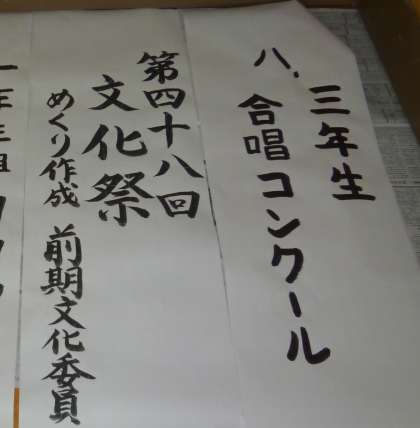 三年生
八、合唱コンクール
第四十八回
文化祭
めくり作成 前期文化委員